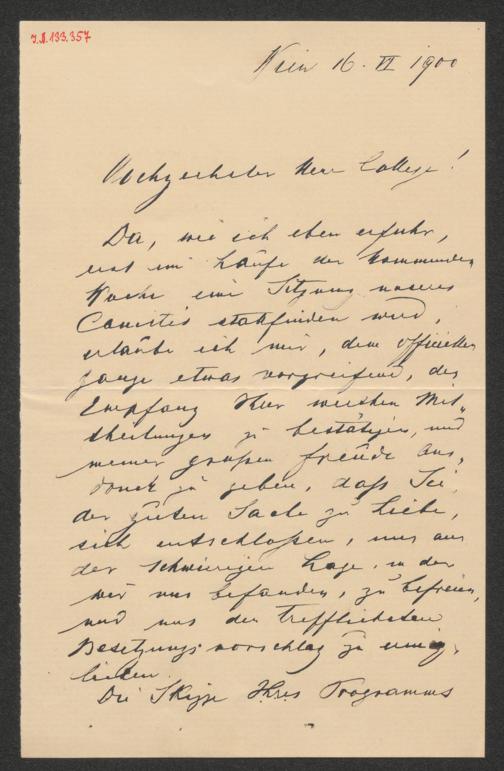 J.N. 133.357
Wien 16. VI 1900
Hochgeehrter Herr College!
Da, wie ich eben erfuhr,
erst im Laufe der kommenden
Woche eine Sitzung unseres
Comités stattfinden wird,
erlaube ich mir, dem officiellen
Gange etwas vorgreifend, den
Empfang Ihrer werthen Mit-
theilungen zu bestätigen, und
meiner großen Freude Aus-
druck zu geben, daß Sie,
der guten Sache zu Liebe,
sich entschloßen, uns aus
der schwierigen Lage, in der
wir uns befanden, zu befreien,
und uns den trefflichsten
Besetzungsvorschlag zu
Die Skizze Ihres Programms